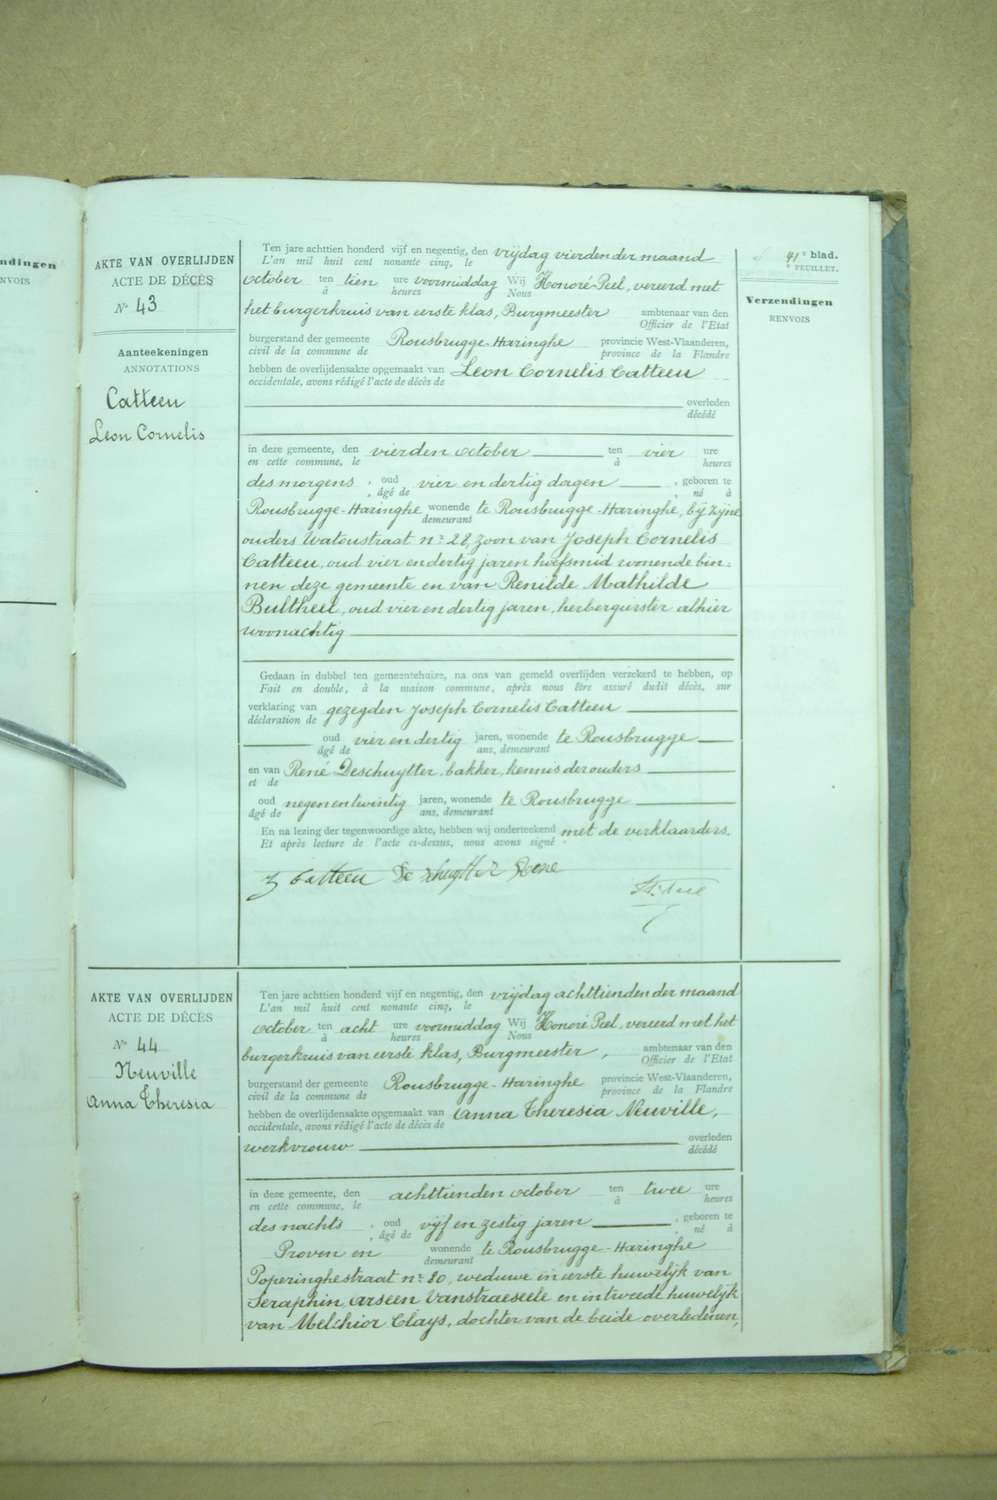 ndingen
NVOIS
AKTE VAN OVERLIJDEN
ACTE DE DÉCÈS
N° 43
Aanteekeningen
ANNOTATIONS
Catteeu
Leon Cornelis
Ten jare achttien honderd vijf en negentig, den vrijdag vierden der maand
L'an mil huit cent nonante cinq, le
october ten tien ure voormiddag Wij Honoré Peel, vereerd met
à heures Nous
het burgerkruis van eerste klas, Burgmeester ambtenaar van den
Officier de l'Etat
burgerstand der gemeente Rousbrugge-Haringhe provincie West-Vlaanderen,
civil de la commune de province de la Flandre
hebben de overlijdensakte opgemaakt van Leon Cornelis Catteeu
occidentale, avons rédigé l'acte de décès de
overleden
décédé
in deze gemeente, den vierden october ten vier ure
en cette commune, le à heures
des morgens, oud vier en dertig dagen, geboren te
, âgé de , né à
Rousbrugge-Haringhe wonende te Rousbrugge-Haringhe, bij zijne
demeurant
ouders Watoustraat n° 28, zoon van Joseph Cornelis
Catteeu, oud vier en dertig jaren hoefsmid wonende bin-
nen deze gemeente en van Renilde Mathilde
Bultheel, oud vier en dertig jaren, herbergierster alhier
woonachtig
Gedaan in dubbel ten gemeentehuize, na ons van gemeld overlijden verzekerd te hebben, op
Fait en double, à la maison commune, après nous être assuré dudit décès, sur
verklaring van gezegden Joseph Cornelis Catteeu
déclaration de
oud vier en dertig jaren, wonende te Rousbrugge
âgé de ans, demeurant
en van René Deschuytter, bakker, kennis der ouders
et de
oud negen en twintig jaren, wonende te Rousbrugge
âgé de ans, demeurant
En na lezing der tegenwoordige akte, hebben wij onderteekend met de verklaarders.
Et après lecture de l'acte ci-dessus, nous avons signé
J Catteeu De Schuytter Rene
91e blad.
e FEUILLET.
Verzendingen
RENVOIS
AKTE VAN OVERLIJDEN
ACTE DE DÉCÈS
N° 44
Neuville
Anna Theresia
Ten jare achttien honderd vijf en negentig, den vrijdag achttienden der maand
L'an mil huit cent nonante cinq, le
october ten acht ure voormiddag Wij Honoré Peel, vereerd met het
à heures Nous
burgerkruis van eerste klas, Burgmeester, ambtenaar van den
Officier de l'Etat
burgerstand der gemeente Rousbrugge-Haringhe provincie West-Vlaanderen,
civil de la commune de province de la Flandre
hebben de overlijdensakte opgemaakt van Anna Theresia Neuville,
occidentale, avons rédigé l'acte de décès de
werkvrouw overleden
décédé
in deze gemeente, den achttienden october ten twee ure
en cette commune, le à heures
des nachts, oud vijf en zestig jaren, geboren te
, âgé de , né à
Proven en wonende te Rousbrugge-Haringhe
demeurant
Poperinghestraat n° 80, weduwe in eerste huwelijk van
Seraphin Arseen Vanstraeseele en in tweede huwelijk
van Melchior Clays, dochter van de beide overledenen,